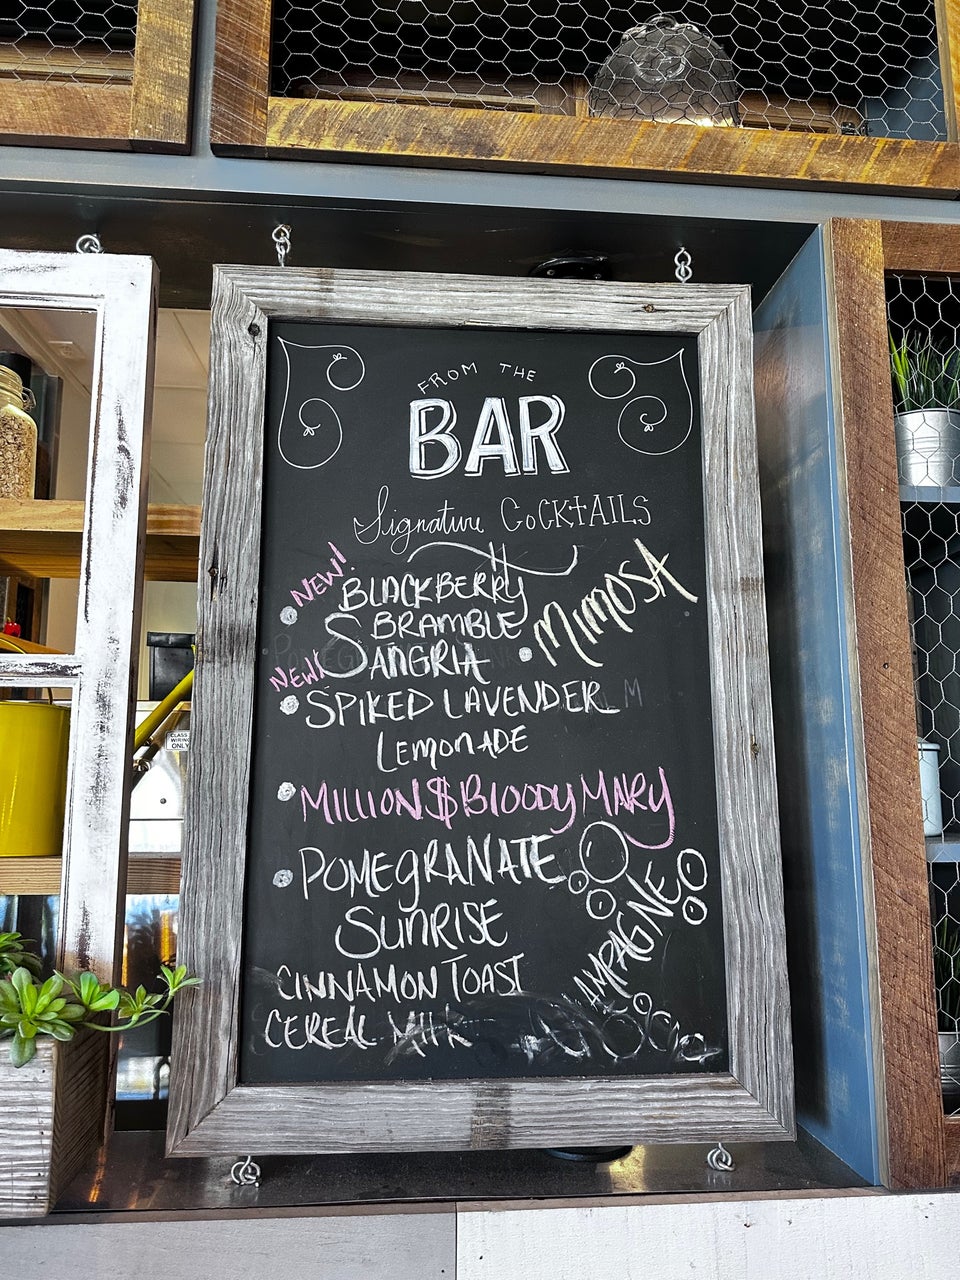 FROM THE
BAR
Signature COCKTAILS
NEW!
BLACKBERRY
BRAMBLE
MIMOSA
NEW!
SANGRIA
SPIKED LAVENDER
LEMONADE
MILLION $ BLOODY MARY
POMEGRANATE
SUNRISE
CINNAMON TOAST
CEREAL MILK
CLASS
WIRING
ONLY